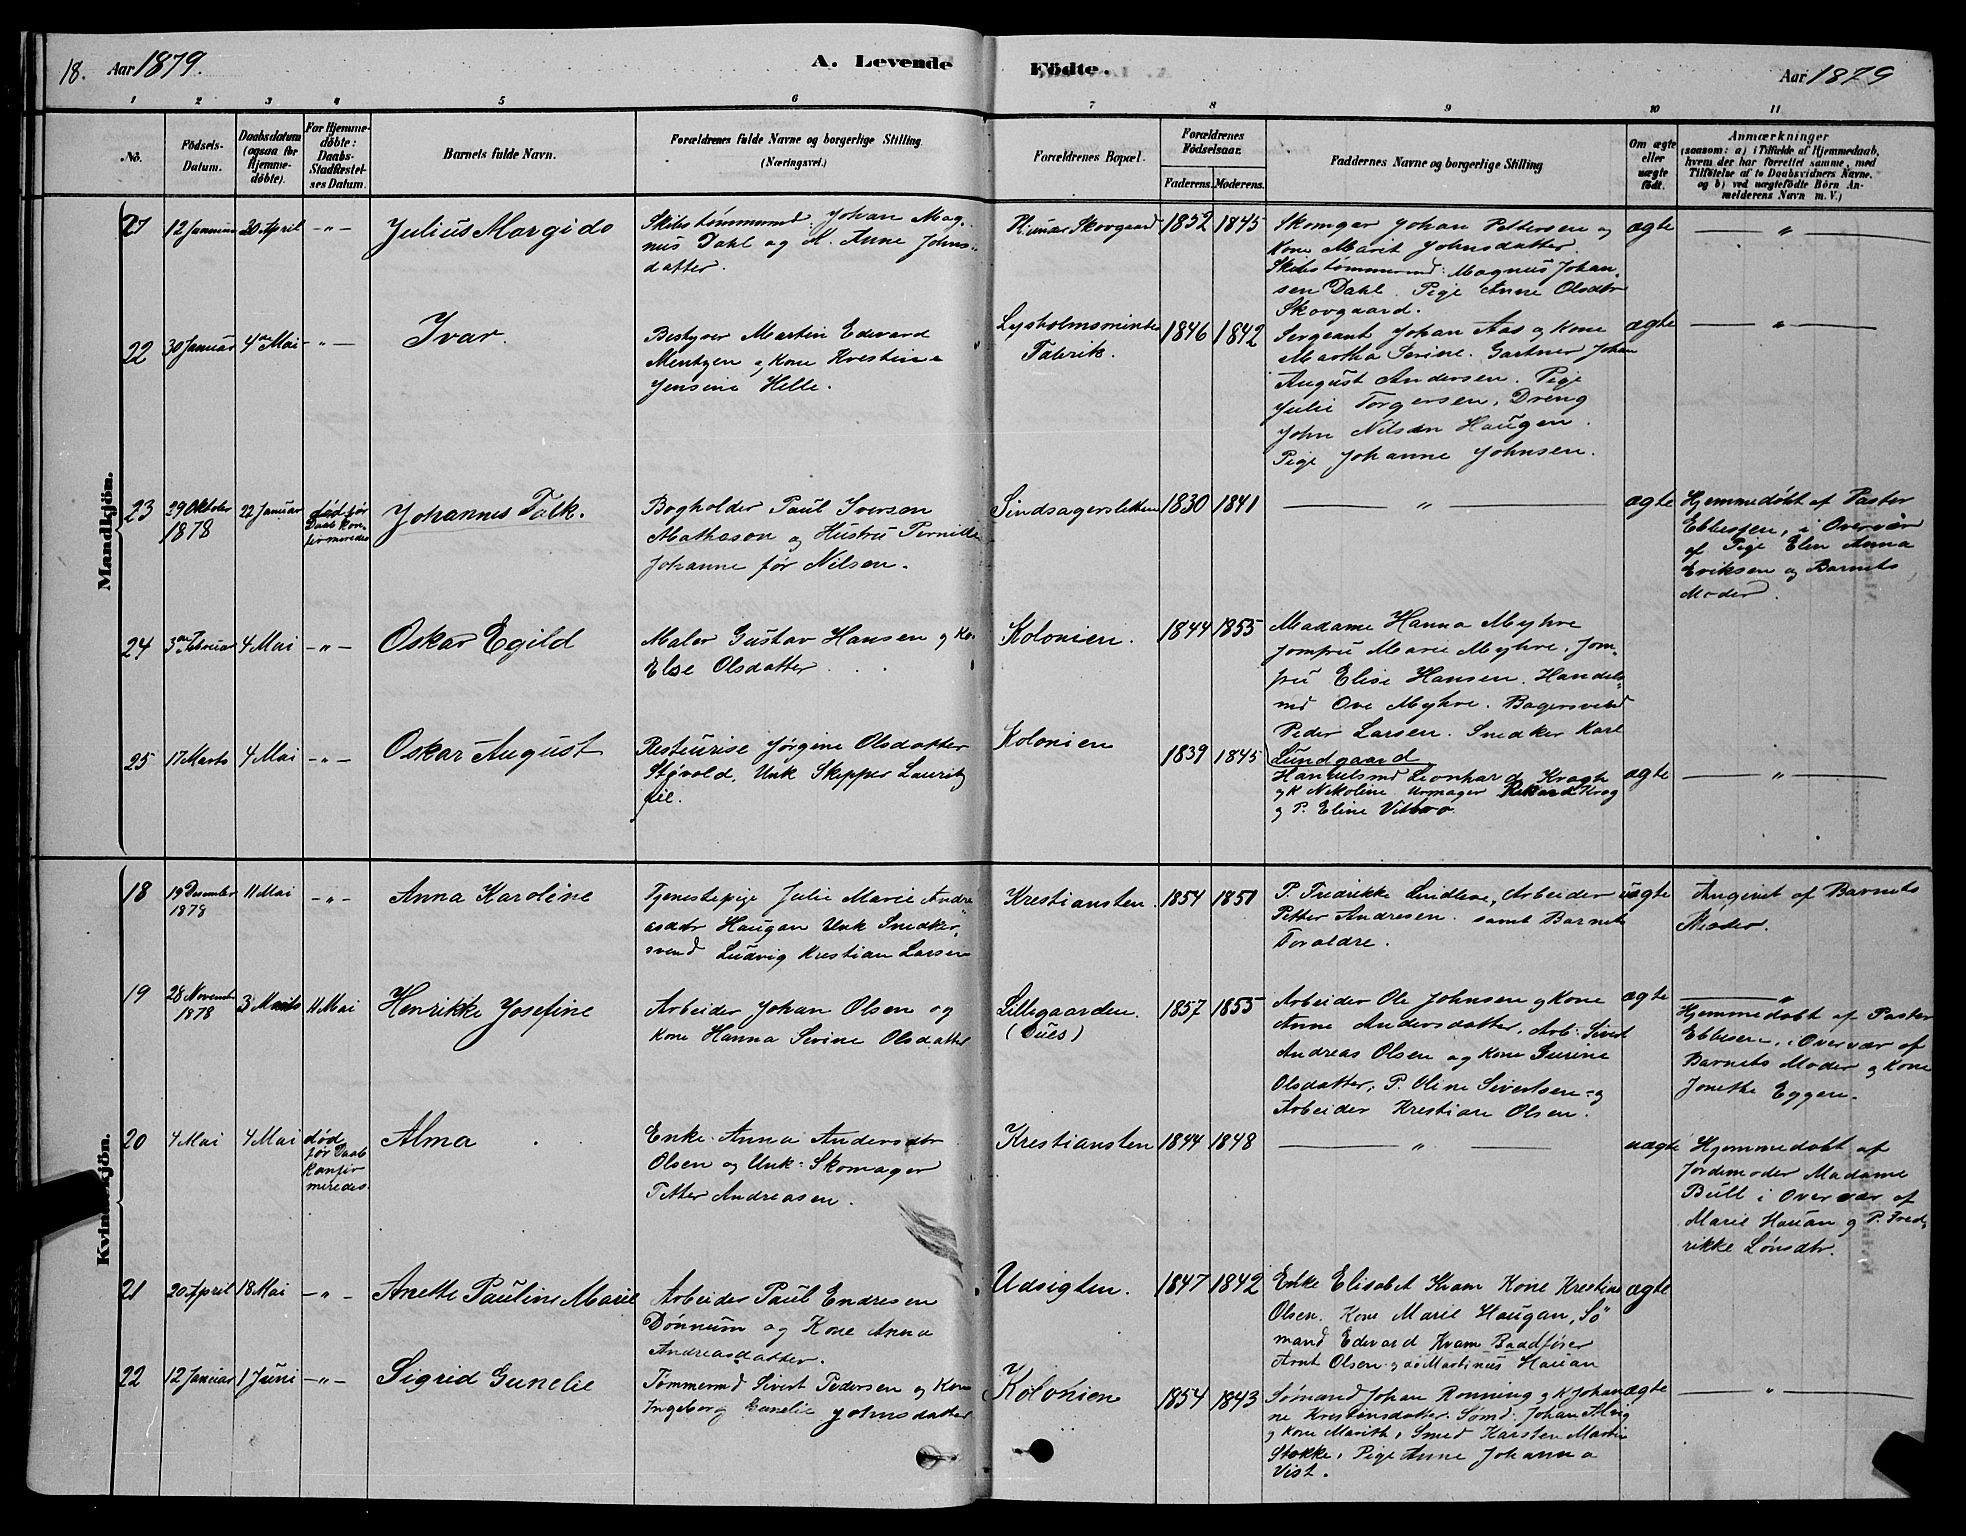 18. Aar 1879. A. Levende Födte. Aar 1879
1 2 3 4 5 6 7 8 9 10 11
No.
Födsels-
Datum.
Daabsdatum
(ogsaa for
Hjemme-
döbte).
For Hjemme-
döbte:
Daabs-
Stadfæstel-
ses Datum.
Barnets fulde Navn.
Forældrenes fulde Navne og borgerlige Stilling
(Næringsvei.)
Forældrenes Bopæl.
Forældrenes
Födselsaar.
Faderens. Moderens.
Faddernes Navne og borgerlige Stilling
Om ægte
eller
uægte
födt.
Anmærkninger
(saasom: a) i Tilfælde af Hjemmedaab,
hvem der har forrettet samme, med
Tilföielse af to Daabsvidners Navne.
og b) ved uægtefödte Börn An-
melderens Navn m. V.)
Mandkjön.
21 12 Januar 20 April -"- Julius Margido
Skibstømmermd: Johan Mag-
nus Dahl og K. Anne Johns-
datter.
Skovgaard 1852 1845
Skomager Johan Pettersen og
Kone Marit Johnsdatter.
Skibstømmermd: Magnus Johan-
sen Dahl. Pige Anne Olsdtr
Skovgaard.
ægte — " —
22 30 Januar 4de Mai -"- Ivar.
Bestyrer Martin Edvard
Mentzen og Kone Krestine
Jensine Helle.
Lysholmsminde
Fabrik.
1846 1842
Sergeant Johan Aas og Kone
Martha Serine. Gartner Johan
August Andersen. Pige
Julie Torgersen. Dreng
John Nilsen Haugen.
Pige Johanne Johnsen.
ægte — " —
23 29 Oktober
1878
22 Januar
død før
Daab kon-
firmeredes
Johannes Falk.
Bogholder Paul Iversen
Mathason og Hustru Pernille
Johanne før Nilsen.
Sindsagersletten 1830 1841 — " — ægte
Hjemmedøbt af Pastor
Ebbesen, i Overvær
af Pige Elen Anna
Eriksen og Barnets
Moder.
24 3die Februar 4 Mai -"- Oskar Egild
Maler Gustav Hansen og Ko.
Else Olsdatter.
Kolonien. 1844 1855
Madame Hanna Myhre
Jomfru Marie Myhre. Jom-
fru Elise Hansen. Handels-
md Ove Myhre. Bagersvend
Peder Larsen. Snedker Karl
Lundgaard
25 17 Marts 4 Mai -"- Oskar August
Jørgine Olsdatter
Unk Skipper Lauritz
Kolonien 1839 1845
Handelsmd Leonhard Krogh
og K Nikoline Urmager Rikard Krog
og P. Eline
ægte — " —
Kvindekjön.
18 19 Desember
1878
11 Mai -"- Anna Karoline
Tjenestepige Julie Marie Andre
asdtr Haugan Unk Snedker-
svend Ludvig Kristian Larsen
Krestiansten. 1854 1851
P. Fredrikke Lindløve, Arbeider
Petter Andresen. samt Barnets
Forældre.
uægte
Angivet af Barnets
Moder.
19 28 November
1878
3 Marts 11 Mai Henrikke Josefine
Arbeider Johan Olsen og
Kone Hanna Sirine Olsdatter
Lillegaarden.
(Dues)
1857 1855
Arbeider Ole Johnsen og Kone
Anne Andersdatter. Arb: Sivert
Andreas Olsen og Kone Gurine
Olsdatter, P. Oline Sivertsen og
Arbeider Krestian Olsen.
ægte — " —
Hjemmedøbt af Pastor
Ebbesen, i Overvær af
Barnets Moder og Kone
Jonetta Eggen.
20 4 Mai 4 Mai
død
før Daab
konfir
meredes.
Alma
Enke Anna Andersdtr
Olsen og Unk: Skomager
Petter Andreasen.
Krestiansten 1844 1848 — " — uægte
Hjemmedøbt af
Jordemoder Madame
Bull i Overvær af
Marie Hauan og P. Fred-
rikke Lønsdtr.
21 20 April 18 Mai -"- Anette Pauline Marie
Arbeider Paul Endresen
Dønnum og Kone Anna
Andreasdatter.
Udsigten. 1847 1842
Enke Elisabet Kvam Kone Krestine
Olsen. Kone Marie Haugan, Sø
mand Edevard Kvam Baadfører
Arnt Olsen og do Martinus Hauan
ægte
22 12 Januar 1 Juni -"- Sigrid Gunelie
Tømmermd Sivert Pedersen og Kone
Ingeborg Gunelie Johnsdatter
Kolonien 1854 1843
Sømand Johan Rønning og K Johan
ne Krestensdatter. Sømd. Johan Alvig
og Kone Marith, Smed Karsten Martin
Stokke, Pige Anne Johanna
Vist.
ægte — " —